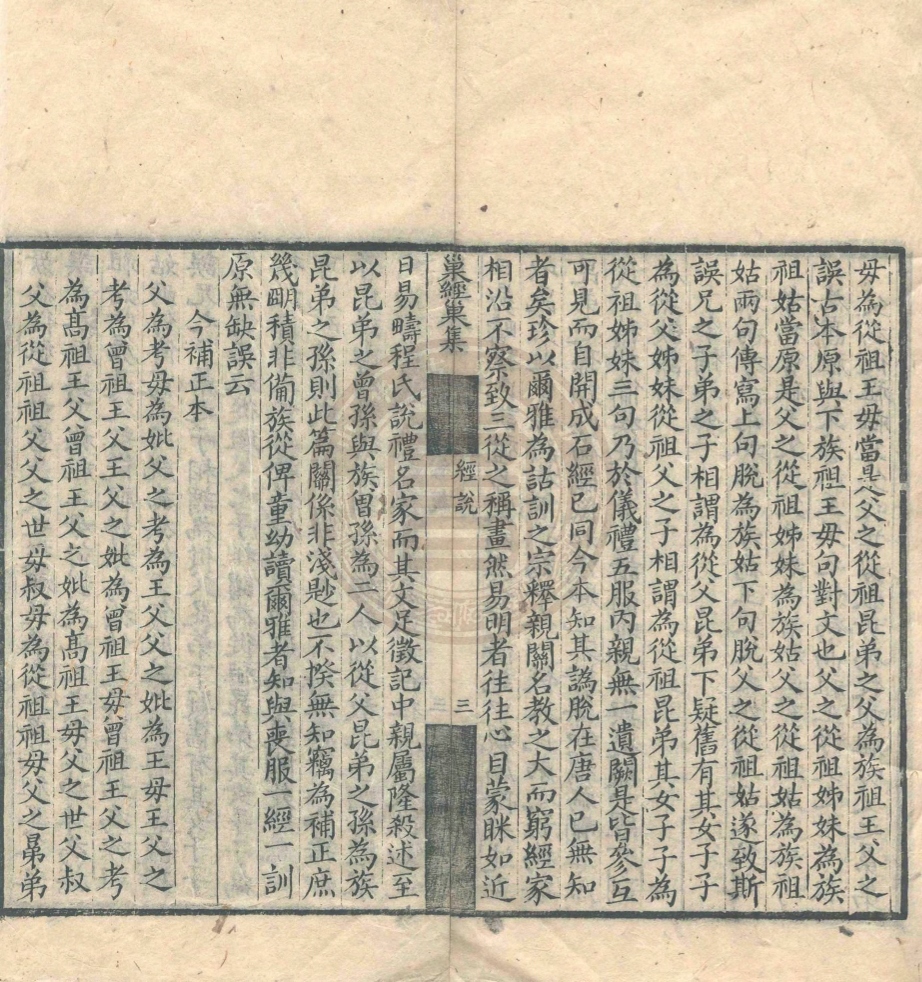 毋為從祖王毋當是父之從祖昆弟之父為族祖王父之
誤古本原與下族祖王毋句對文也父之從祖姊妹為族
祖姑當原是父之從祖姊妹為族姑父之從祖姑為族祖
姑兩句傳寫上句脫為族姑下句脫父之從祖姑遂致斯
誤兄之子弟之子相謂為從父昆弟下疑舊有其女子子
為從父姊妹從祖父之子相謂為從祖昆弟其女子子為
從祖姊妹三句乃於儀禮五服丙親無一遺闕是皆參互
可見而自開成石經已同今本知其譌脫在唐人已無知
者矣珍以爾雅為詁訓之宗釋親關名教之大而窮經家
相沿不察致三從之稱畫然易明者往往心目蒙眯如近
巢經巢集 經說 三
日易疇程氏說禮名家而其文足徵記中親屬隆殺述至
以昆弟之曾孫與族曾孫為二人以從父昆弟之孫為族
昆弟之孫則此篇關係非淺尟也不揆無知竊為補正庶
幾朙積非備族從俾童幼讀爾雅者知與喪服一經一訓
原無缺誤云
今補正本
父為考毋為妣父之考為王父父之妣為王毋王父之
考為曾祖王父王父之妣為曾祖王毋曾祖王父之考
為髙祖王父曾祖王父之妣為髙祖王毋父之世父叔
父為從祖祖父父之世毋叔毋為從祖祖毋父之晜弟